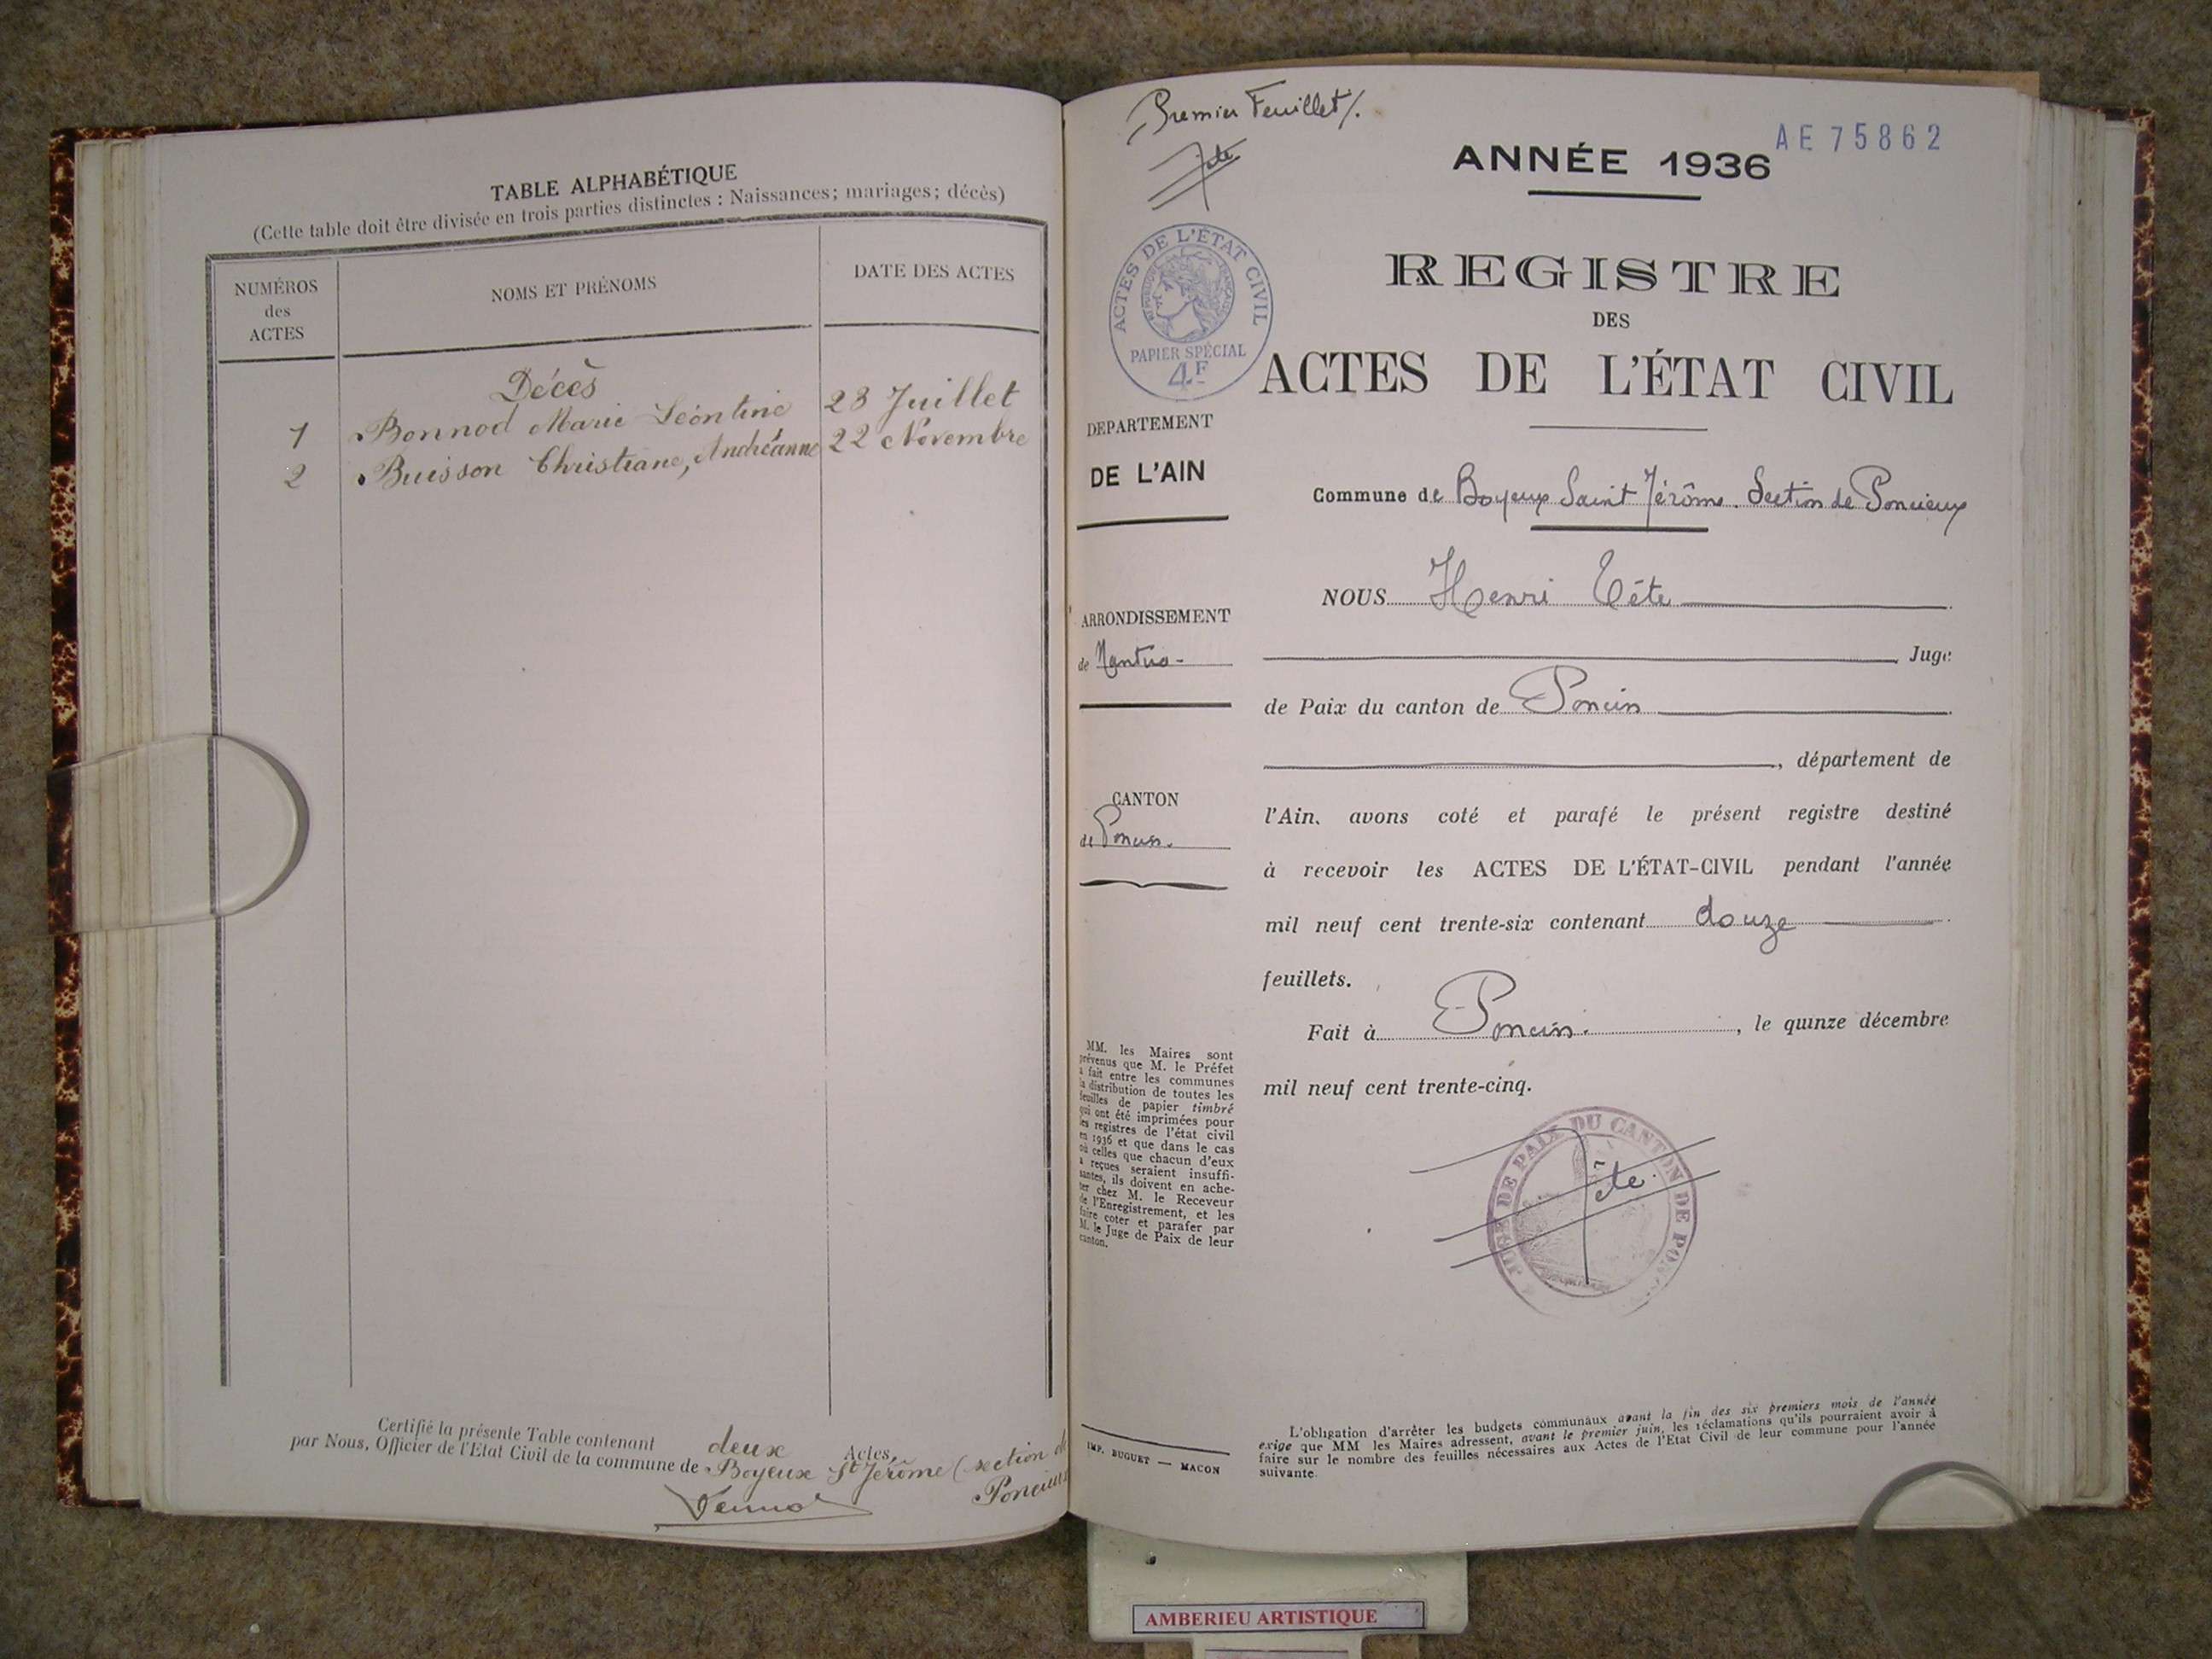 TABLE ALPHABÉTIQUE
(Cette table doit être divisée en trois parties distinctes : Naissances; mariages; décès)
NUMÉROS
des
ACTES
NOMS ET PRÉNOMS
DATE DES ACTES
Décès
1 Bonnod Marie Léontine 28 Juillet
2 Buisson Christiane, Andréanne 22 Novembre
Certifié la présente Table contenant deux Actes,
par Nous, Officier de l'Etat Civil de la commune de Boyeux St Jérôme (section de
Poncieux
Premier Feuillet/.
Tête
AE 75862
ANNÉE 1936
ACTES DE L'ÉTAT CIVIL
RÉPUBLIQUE FRANÇAISE
PAPIER SPÉCIAL
4F
REGISTRE
DES
ACTES DE L'ÉTAT CIVIL
DEPARTEMENT
DE L'AIN
Commune de Boyeux Saint Jérôme. Section de Poncieux
NOUS Henri Tête
ARRONDISSEMENT
de Nantua -
Juge
de Paix du canton de Poncin
, département de
CANTON
de Poncin.
l'Ain, avons coté et parafé le présent registre destiné
à recevoir les ACTES DE L'ÉTAT-CIVIL pendant l'année
mil neuf cent trente-six contenant douze
feuillets.
Fait à Poncin. , le quinze décembre
mil neuf cent trente-cinq.
MM. les Maires sont
prévenus que M. le Préfet
a fait entre les communes
la distribution de toutes les
feuilles de papier timbré
qui ont été imprimées pour
les registres de l'état civil
en 1936 et que dans le cas
où celles que chacun d'eux
a reçues seraient insuffi-
santes, ils doivent en ache-
ter chez M. le Receveur
de l'Enregistrement, et les
faire coter et parafer par
M. le Juge de Paix de leur
canton.
JUGE DE PAIX DU CANTON DE PON
Tête
IMP. BUGUET — MACON
L'obligation d'arrêter les budgets communaux avant la fin des six premiers mois de l'année
exige que MM les Maires adressent, avant le premier juin, les réclamations qu'ils pourraient avoir à
faire sur le nombre des feuilles nécessaires aux Actes de l'Etat Civil de leur commune pour l'année
suivante.
AMBERIEU ARTISTIQUE